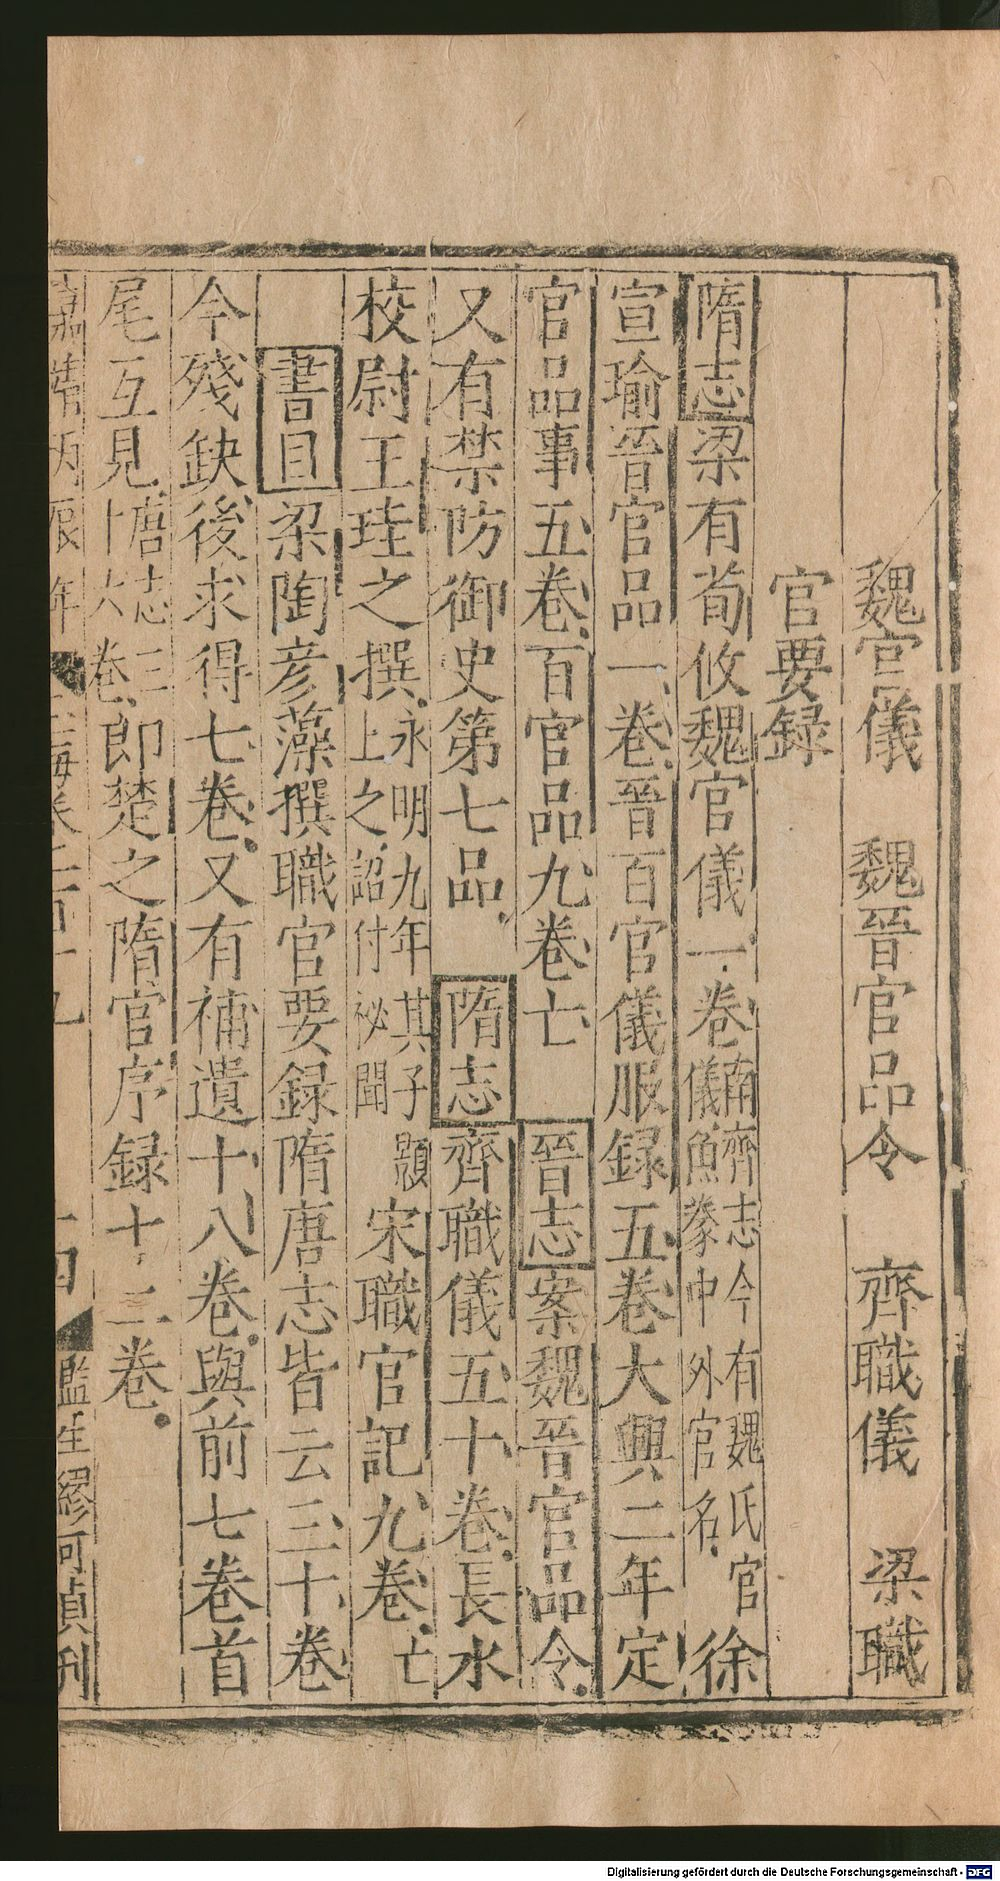 魏官儀　魏晉官品令　齊職儀　梁職
官要録
隋志梁有荀攸魏官儀一卷南齊志今有魏氏官儀魚豢中外官名徐
宣瑜晉官品一卷晉百官儀服録五卷大興二年定
官品事五卷百官品九卷亡　晉志案魏晉官品令
又有禁防御史第七品　隋志齊職儀五十卷長水
校尉王珪之撰永明九年其子顥上之詔付祕閣宋職官記九卷亡
書目梁陶彦藻撰職官要録隋唐志皆云三十卷
今殘缺後求得七卷又有補遺十八卷與前七卷首
尾互見唐志三十六卷即楚之隋官序録十二卷
嘉靖丙辰年　玉海卷二百十九　十四　監生繆可貞刊
Digitalisierung gefördert durch die Deutsche Forschungsgemeinschaft - DFG